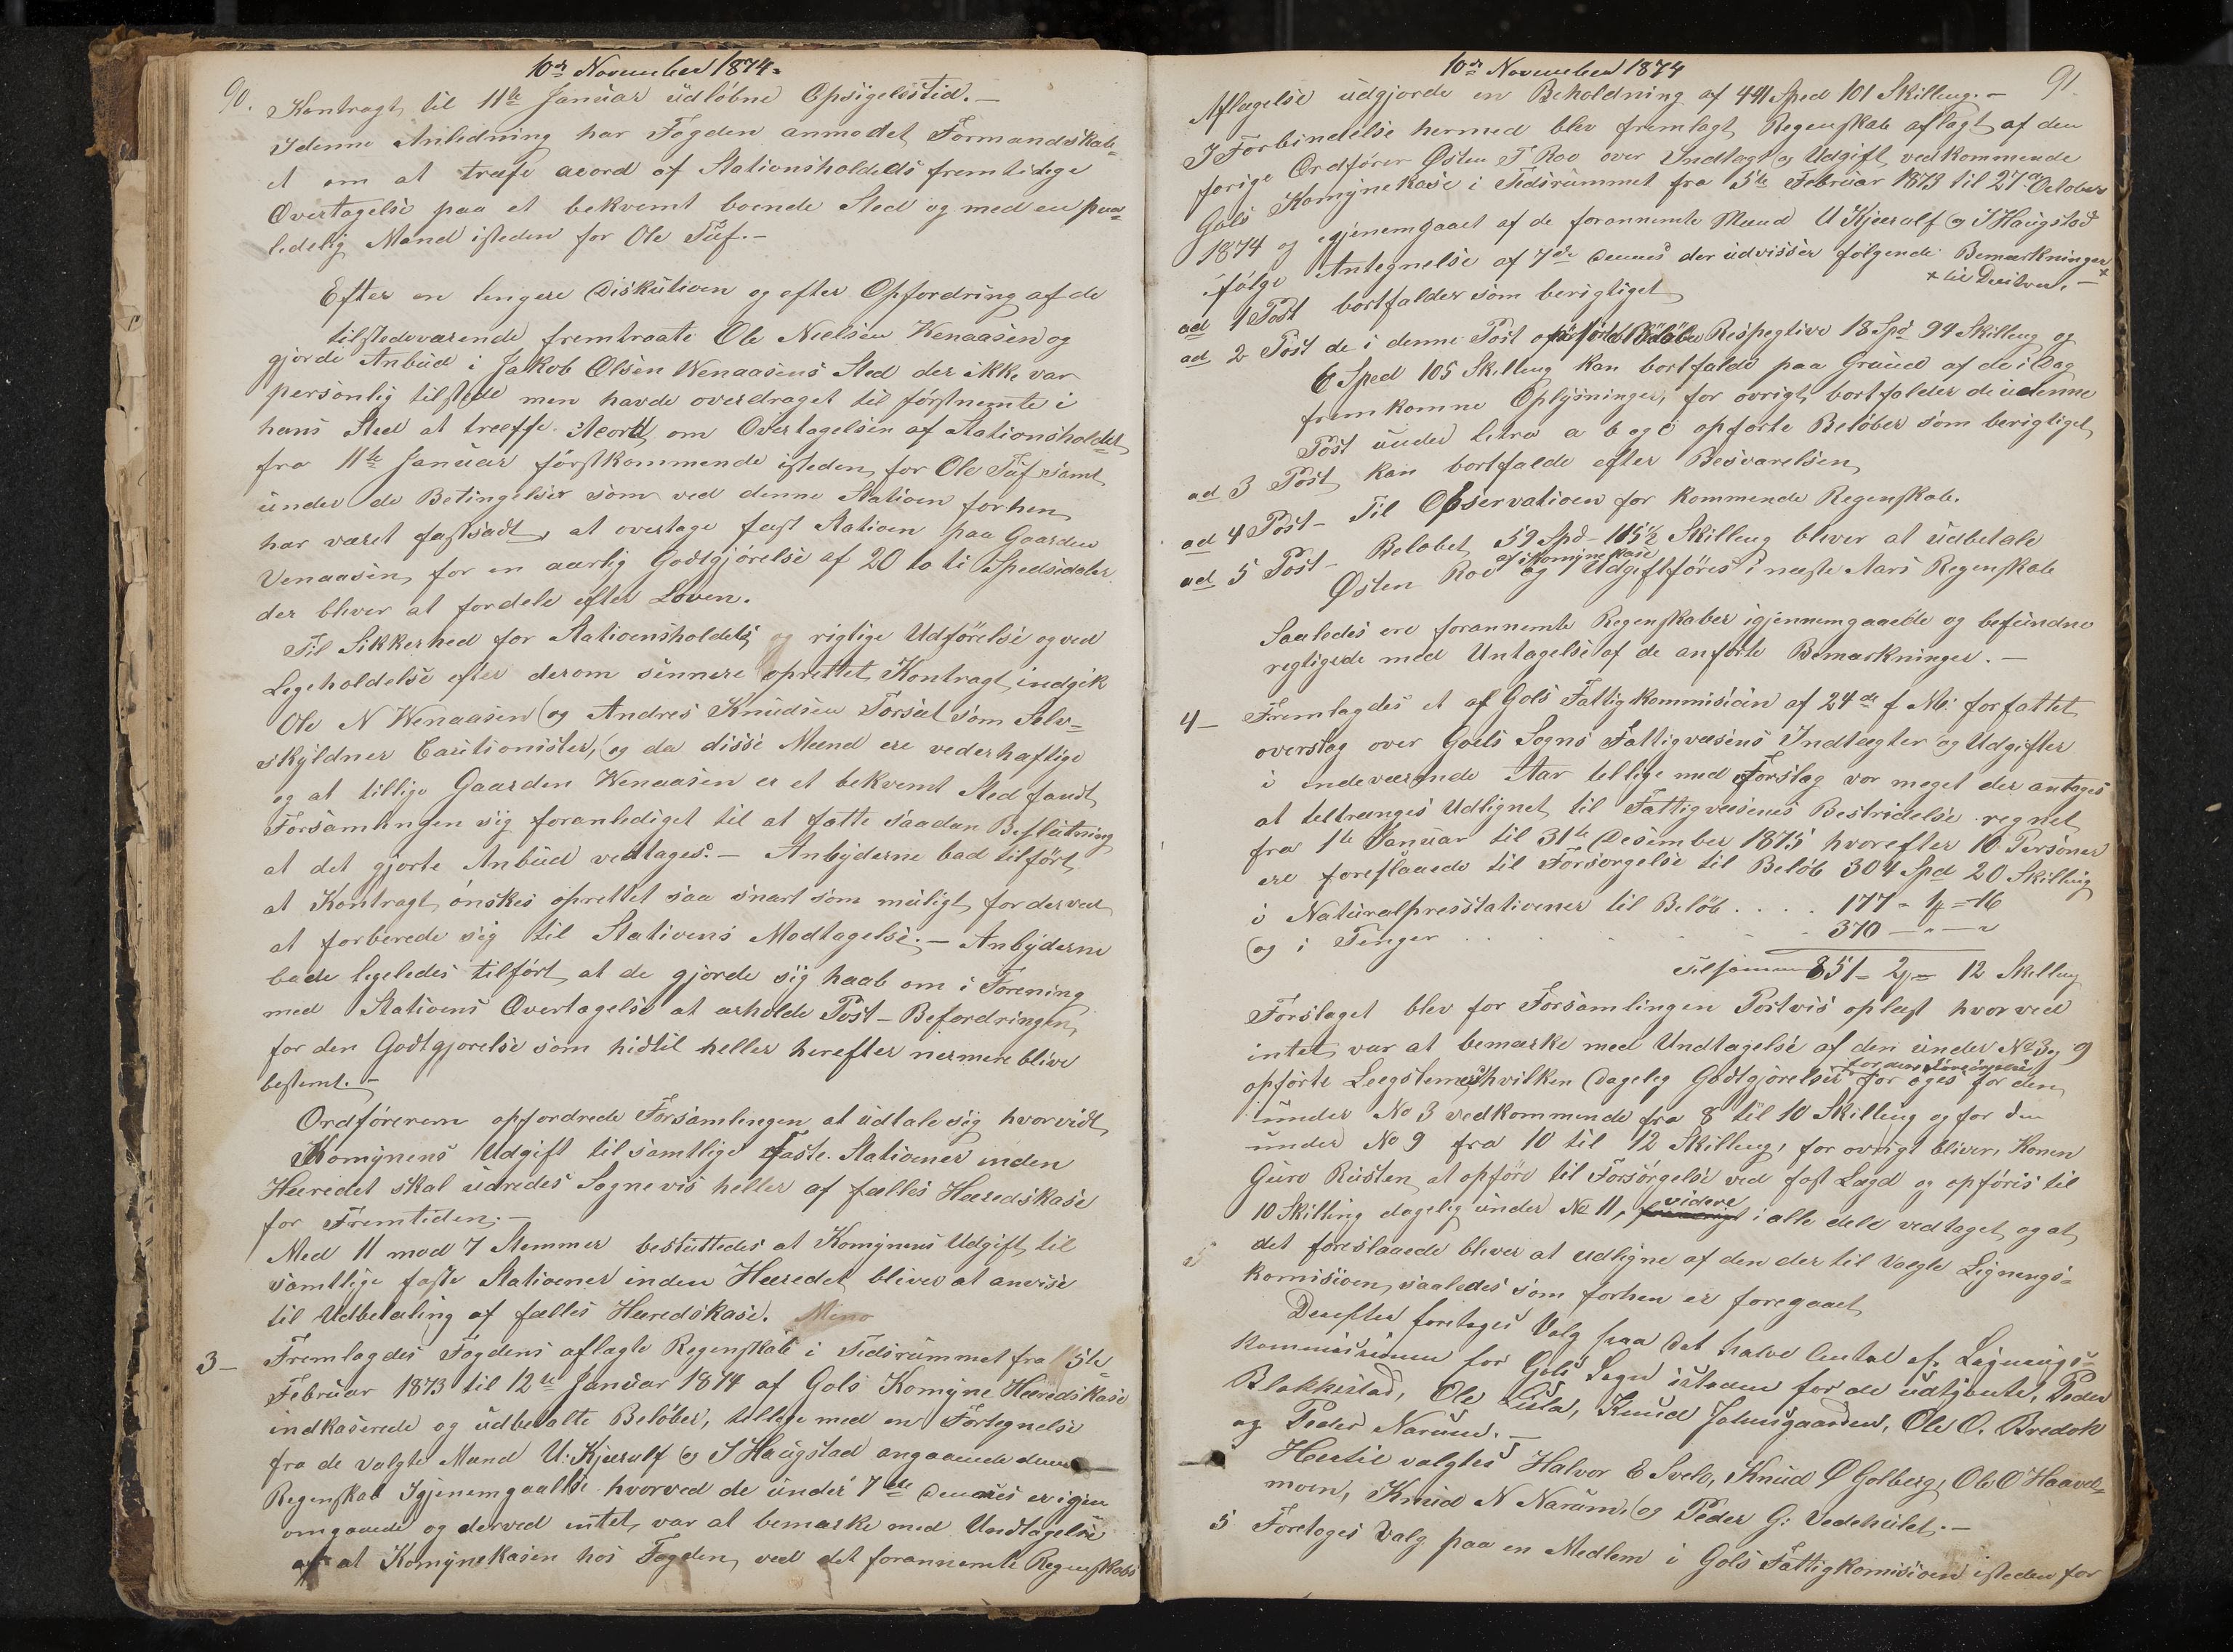 10de November 1874.
90.
Kontragt til 11te Januar udløbne Opsigelsestid.—
I denne Anledning har Fogden anmodet Formandskab-
et om at træfe acord af Stationsholdets fremtidige
Overtagelse paa et bekvemt boende Sted og med en paa-
ledelig Mand isteden for Ole Tuf.—
Efter en lengere Diskution og efter Opfordring af de
tilstedeværende fremtraate Ole Neelsen Wenaasen og
gjorde Anbud i Jakob Olsen Wenaasens Sted der ikke var
personlig tilstede men havde overdraget til førstnemte i
hans Sted at treffe Acord om Overtagelsen af Stationsholdet
fra 11te Januar førstkommende isteden for Ole Tuf samt
under de Betingelser som ved denne Station forhen
har været fastsadt, at overtage fast Station paa Gaarden
Venaasen for en aarlig Godtgjørelse af 20 to ti Spedsidaler
der bliver at fordele efter Loven.
Til Sikkerhed for Stationsholdets og rigtige Udførelse og ved
Legeholdelse efter derom sennere oprettet Kontragt indgik
Ole N Wenaasen og Andres Knudsen Torsæt som Selv-
skyldner Cautionister, og da disse Mænd ere vederhaftige
og at tillige Gaarden Wenaasen er et bekvemt Sted fandt
Forsamlingen sig foranlediget til at fatte saadan Beslutning
at det gjorte Anbud vedtages.— Anbyderne bad tilført
at Kontragt ønskes oprettet saa snart som muligt for derved
at forberede sig til Stationens Modtagelse.— Anbyderne
bade legeledes tilført at de gjorde sig haab om i Forening
med Stationens Overtagelse at erholde Post-Befordringen
for den Godtgjørelse som hidtil heller herefter nermere blive
bestemt.—
Ordføreren opfordrede Forsamlingen at udtale sig hvorvidt
Komynens Udgift til samtlige Faste Stationer inden
Hæredet skal udredes Sognevis heller af fælles Hæredskase
for Fremtiden.—
Med 11 mod 7 Stemmer besluttedes at Komynens Udgift til
samtlige faste Stationer inden Hæredet bliver at anvise
til Udbetaling af fælles Hæredskase.
3— Fremlagdes Fogdens aflagte Regenskab i Tidsrummet fra 5te
Februar 1873 til 12te Januar 1874 af Gols Komyne Hæredskase
indkaserede og udbetalte Beløber, tillige med en Fortegnelse
fra de valgte Mænd U. Kjerulf og T Haugstad angaaende denne
Regenskab Igjenemgaaelse hvorved de under 7de Dennes er igjen
omgaaede og derved intet var at bemærke med Undtagelse
af at Komynekasen hos Fogden ved det forannemte Regenskabs
10de November 1874
91.
Aflægelse udgjorde en Beholdning af 441 Sped 101 Skilling.—
I Forbindelse hermed blev fremlagt Regenskab aflagt af den
forige Ordfører Østen T Roo over Indtægt og Udgift vedkommende
Gols Komynekase i Tidsrummet fra 5te Februar 1873 til 27de October
1874 og igjenemgaaet af de forannemte Mænd U Kjerulf og T Haugstad
ifølge Antegnelse af 7de Dennes der udvisser følgende Bemærkninger
× til Desitver.—
ad 1 Post bortfalder som berigtiget
ad 2 Post de i denne Post opførte Beløber Respegtive 18 Spd 94 Skilling og
6 Sped 105 Skilling kan bortfalde paa Grund af de i Dag
fremkomne Oplysninger, for øvrigt bortfalder de i denne
Post under Litra a b og c opførte Beløber som berigtiget
ad 3 Post kan bortfalde efter Besvarelsen
ad 4 Post— Til Observation for kommende Regenskab.
ad 5 Post— Beløbet 59 Spd— 115½ Skilling bliver at udbetale
af Komynekase
Østen Roo og Udgiftføres i neste Aars Regenskab
Saaledes ere forannemte Regenskaber igjennemgaaede og befundne
regtigede med Untagelse af de anførte Bemærkninger.—
4— Fremlagdes et af Gols Fattigkommision af 24de f M: forfattet
overslag over Goels Sogns Fattigvæsens Indtægter og Udgifter
i indeværende Aar tillige med Forslag vor meget der antages
at teltrænges Udlignet til Fattigvæsenes Bestridelse regnet
fra 1te Januar til 31te Desember 1875 hvorefter 10 Personer
ere foreslaaede til Forsørgelse til Beløb 304 Spd 20 Skilling
i Naturalpresstationer til Beløb . . . . 177 - 4 - 16
og i Penger . . . . . 370 — " — "
Tilsammen 851 - 2 - 12 Skilling
Forslaget blev for Forsamlingen Postvis oplæst hvorved
intet var at bemærke med Undtagelse af den under No 3 og 9
opførte Legslemer hvilken Dagelig Godtgjørelse for øges for den
under No 3 vedkommende fra 8 til 10 Skilling og for den
under No 9 fra 10 til 12 Skilling, for øvrigt bliver, Konen
Guro Rusten at opføre til Forsørgelse ved fast Lægd og opføris til
10 Skilling dagelig under No 11, videre i alle dele vedtaget og at
det foreslaaede bliver at udligne af den der til Valgte Lignings-
komision saaledes som forhen er foregaaet
Derefter foretages Valg paa det halve Antal af Lignings-
kommisionen for Gols Sogn isteden for de udtjente, Peder
Blakkestad, Ole Lula, Knud Johnsgaarden, Ole O. Bredok
og Peder Narum.—
Hertil valgtes Halvor E Svelo, Knud O Golberg, Ole O Haavel-
moen, Knud N Narum, og Peder G: Vedehulet.—
5 Foretoges Valg paa en Medlem i Gols Fattigkomision isteden for